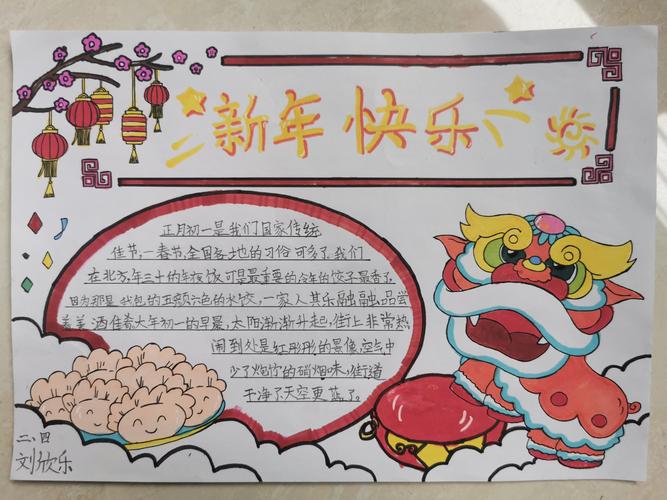 新年快乐
正月初一是我们国家传统
佳节,一春节,全国各地的习俗可多了,我们
在北方,年三十的年夜饭可是最重要的,今年的饺子最香了,
因为那是我包的五颜六色的水饺,一家人其乐融融,品尝
着美酒佳肴大年初一的早晨,太阳渐渐升起,街上非常热
闹到处是红彤彤的景像,空气中
少了炮竹的硝烟味,街道
干净了天空更蓝了。
二、四
刘欣乐